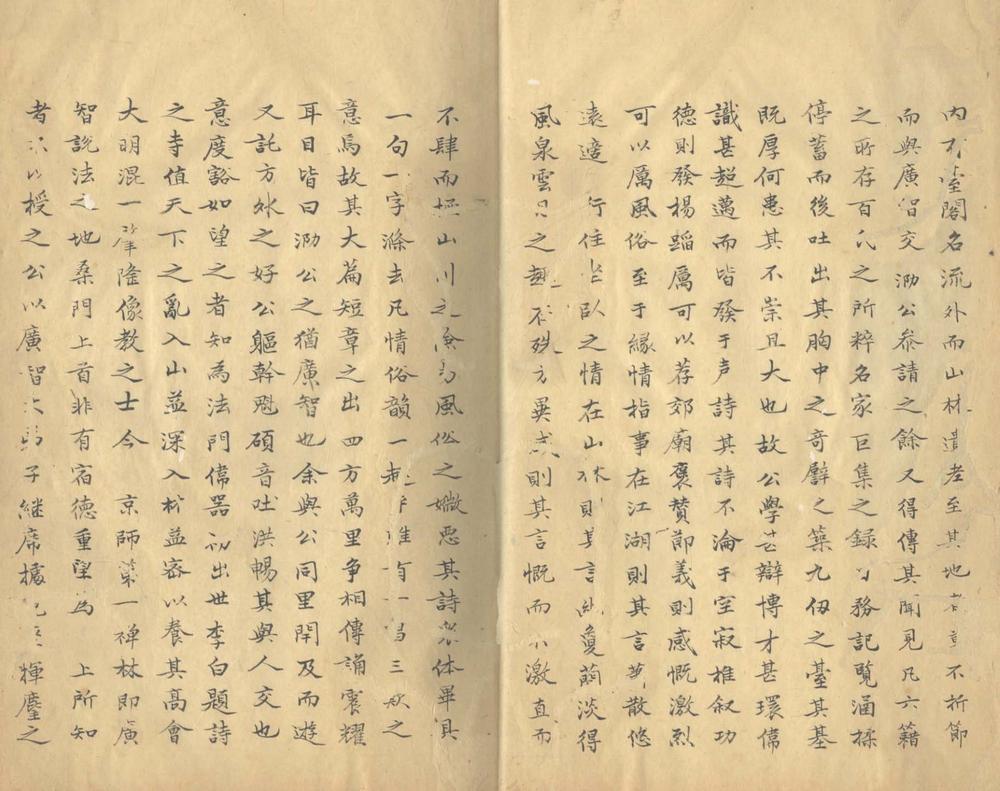 內 臺閣名流外而山林遺老至其地者 不折節
而與廣智交泐公參請之餘又得傳其聞見凡六籍
之所存百氏之所粹名家巨集之録 務記覧涵揉
停蓄而後吐出其胸中之奇譬之築九仭之臺其基
既厚何患其不崇且大也故公學甚辯博才甚環偉
識甚超邁而皆發于声詩其詩不淪于空寂惟叙功
德則發楊蹈厲可以荐郊廟褒賛節義則感慨激烈
可以厲風俗至于縁情指事在江湖則其言蕭散悠
遠適 行住坐臥之情在山林則其言幽夐簡淡得
風泉雲月之趣 殊方異 則其言慨而不激直而
不肆而 山川之 風俗之媺惡其詩衆体畢具
一句一字滌去凡情俗韻一 唯 三 之
意焉故其大篇短章之出四方萬里争相傳誦震耀
耳目皆曰泐公之猶廣智也余與公同里閈及而遊
又託方外之好公軀幹魁碩音吐洪暢其與人交也
意度豁如望之者知為法門偉器初出世李白題詩
之寺值天下之亂入山益深入林益密以養其高會
大明混一肇隆像教之士今 京師第一禅林即廣
智説法之地桑門上首非有宿德重望為 上所知
者 以授之公以廣智 子継席據 揮麈之